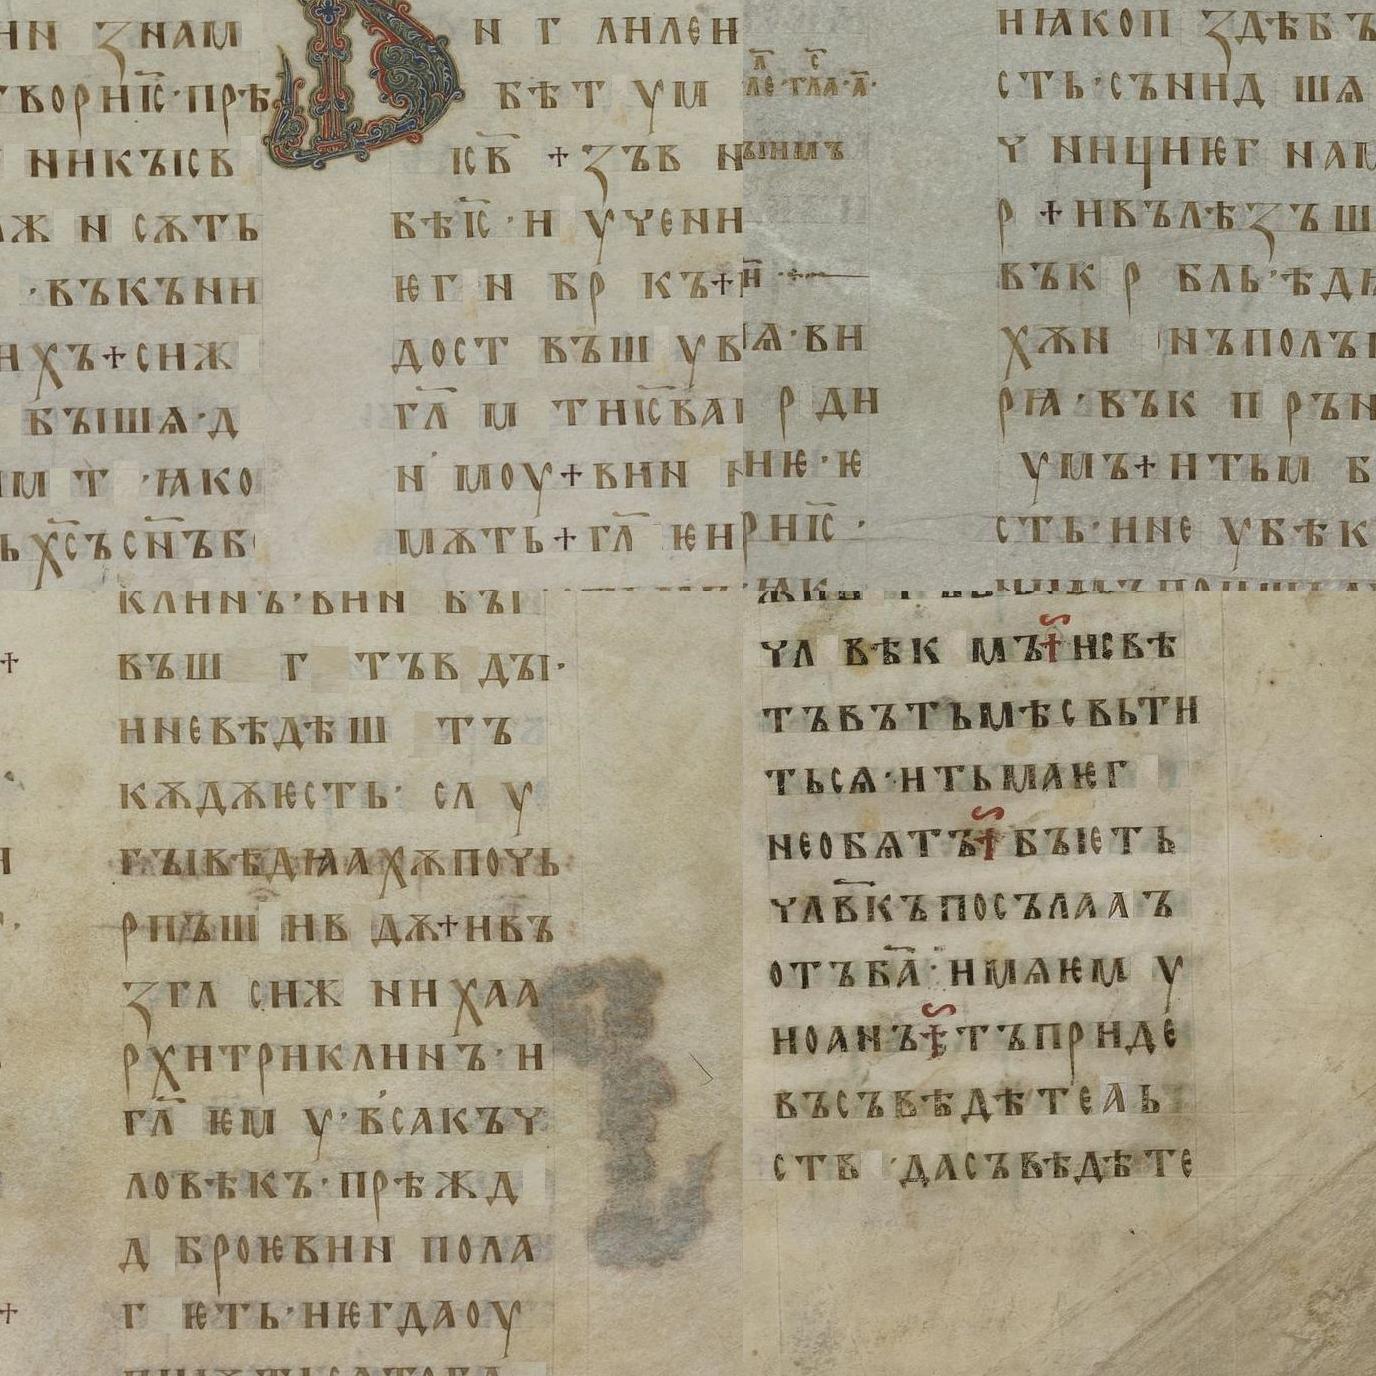 нн знам
творнїс·прѣ
ннкъісв
ж н сѫть
·въкънн
нхъ+снж
бъішѧ·д
нм т ·ꙗко
ь х҃съсн҃ъб
н г лнлен
бѣт ум
ісв̅ +зъв н
бѣі҃с·н уѵенн
ѥг н бр къ+
дост въш ув
гл҃ м тні҃сва
н моу+внн
мѫть+гл҃ ѥн
ле·гла·а҃·
ъінмъ
ѧ·вн
р дн
ню·ѥ
рні҃с·
нꙗкоп здѣбъ
сть·съннд шѧ
ѵ ннцнѥг нам
р +нвълѣзъш
вък р бль·ѣдн
хѫн нъполъ
рꙗ·вък п рън
умъ+нтьм б
сть·нне убѣк
клннъ·внн бъі
въш г тъв дъі·
нневѣдѣш тъ
кѫдѫѥсть· сл у
гъівѣдѣахѫпоѵь
рпъш нв дѫ+нвъ
згл снж ннхаа
рхнтрнклннъ·н
гл҃ ѥм у·всакъѵ
ловѣкъ·прѣжд
д броѥвнн пола
г ѥть·нѥгдаоу
ѵл вѣк мъ+нсвѣ
тъвътьмѣсвьтн
тьсѧ·нтьмаѥг
необѧтъ+бъіеть
ѵлв҃къпосълаа ъ
отъба҃·нмѧѥм у
ноанъ+тъпрнде
въсъвѣдѣтель
ств ·дасъвѣдѣте